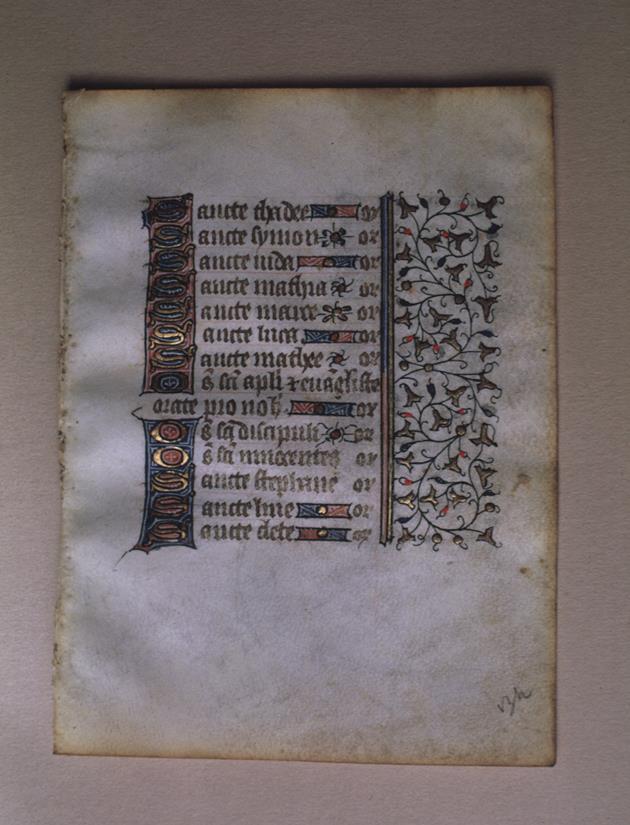 Sancte thadee or
Sancte symon or
Sancte iuda or
Sancte mathia or
Sancte marce or
Sancte luca or
Sancte mathee or
Os̄ sc̄i apl̄i ⁊ euāgliste
orate pro nob̄ or
Os̄ sc̄i discipuli or
Os̄ sc̄i innocentes or
Sancte stephane or
Sancte line or
Sancte clete or